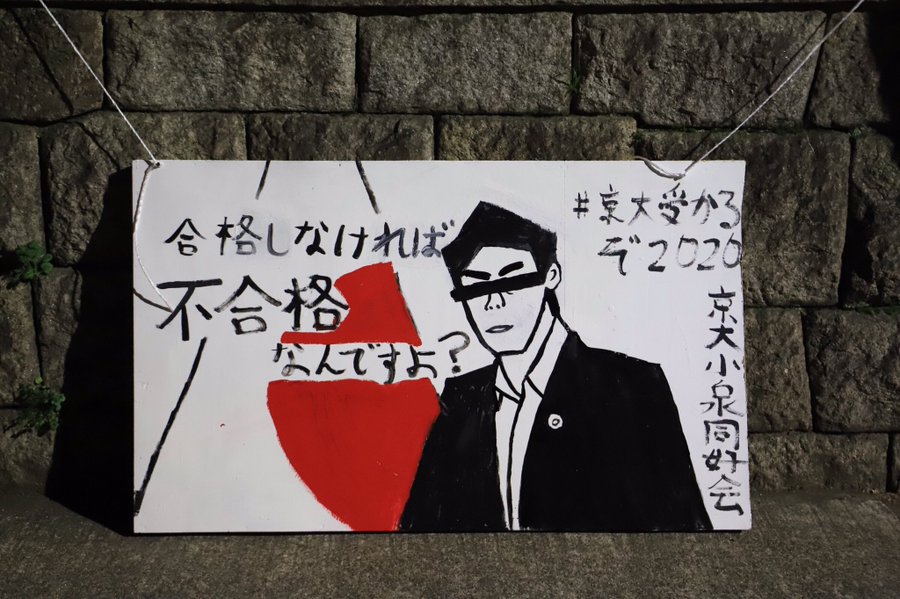 合格しなければ
不合格
なんですよ?
#京大受かる
ぞ2020
京大小泉同好会